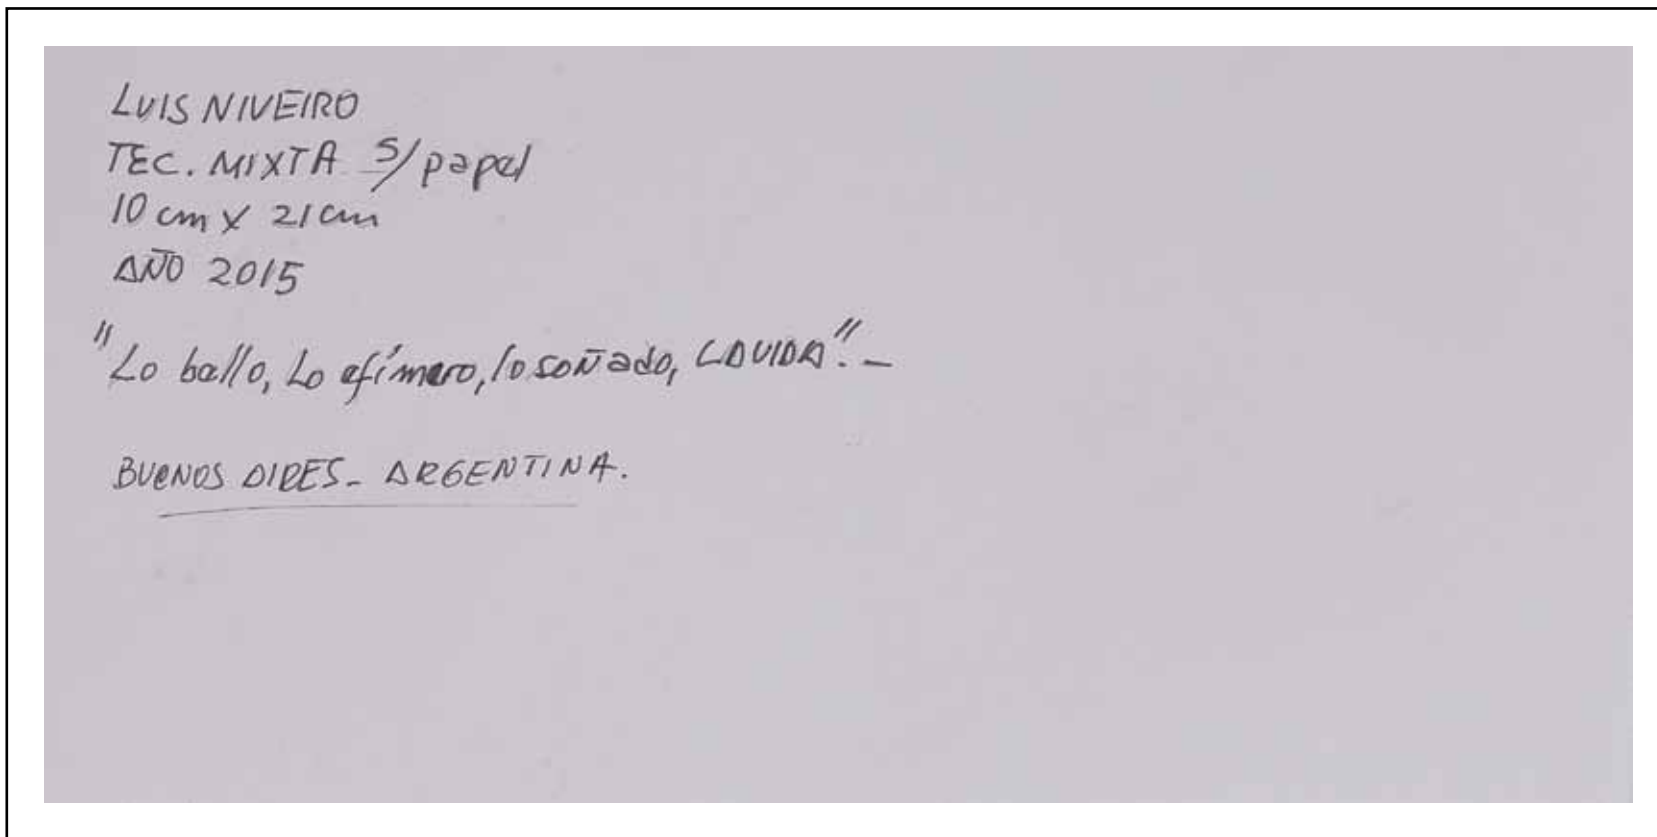 LUIS NIVEIRO
TEC. MIXTA S/papel
10 cm x 21 cm
AÑO 2015
"Lo bello, Lo efímero, lo soñado, LA VIDA".-
BUENOS AIRES- ARGENTINA.